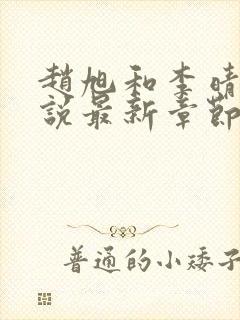 趙旭和李晴
說最新章節
普通的小矮子